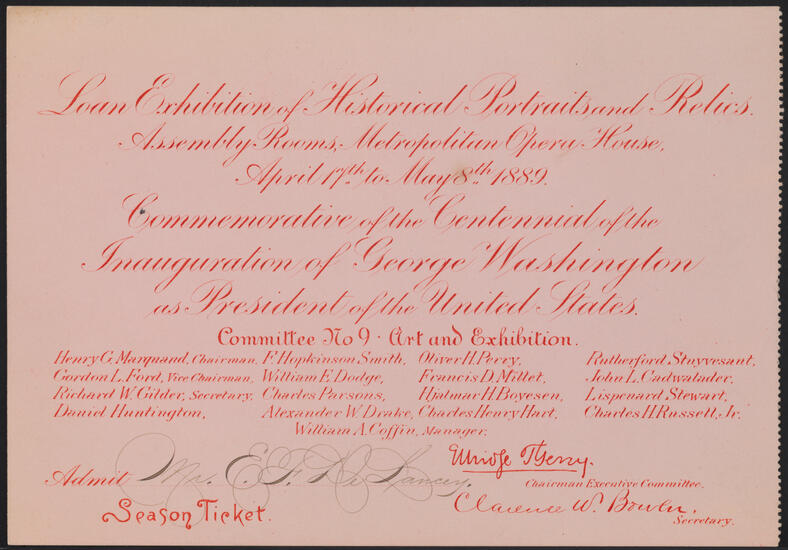 Loan Exhibition of Historical Portraits and Relics.
Assembly Rooms, Metropolitan Opera House,
April 17th to May 8th 1889.
Commemorative of the Centennial of the
Inauguration of George Washington
as President of the United States.
Committee No 9 · Art and Exhibition.
Henry G. Marquand, Chairman, F. Hopkinson Smith, Oliver H. Perry, Rutherford Stuyvesant,
Gordon L. Ford, Vice Chairman, William E. Dodge, Francis D. Millet, John L. Cadwalader,
Richard W. Gilder, Secretary, Charles Parsons, Hjalmar H. Boyesen, Lispenard Stewart,
Daniel Huntington, Alexander W. Drake, Charles Henry Hart, Charles H. Russell, Jr.
William A. Coffin, Manager,
Admit Mr. E. F. De Lancey.
Elbridge T. Gerry.
Chairman Executive Committee.
Season Ticket.
Clarence W. Bowen.
Secretary.